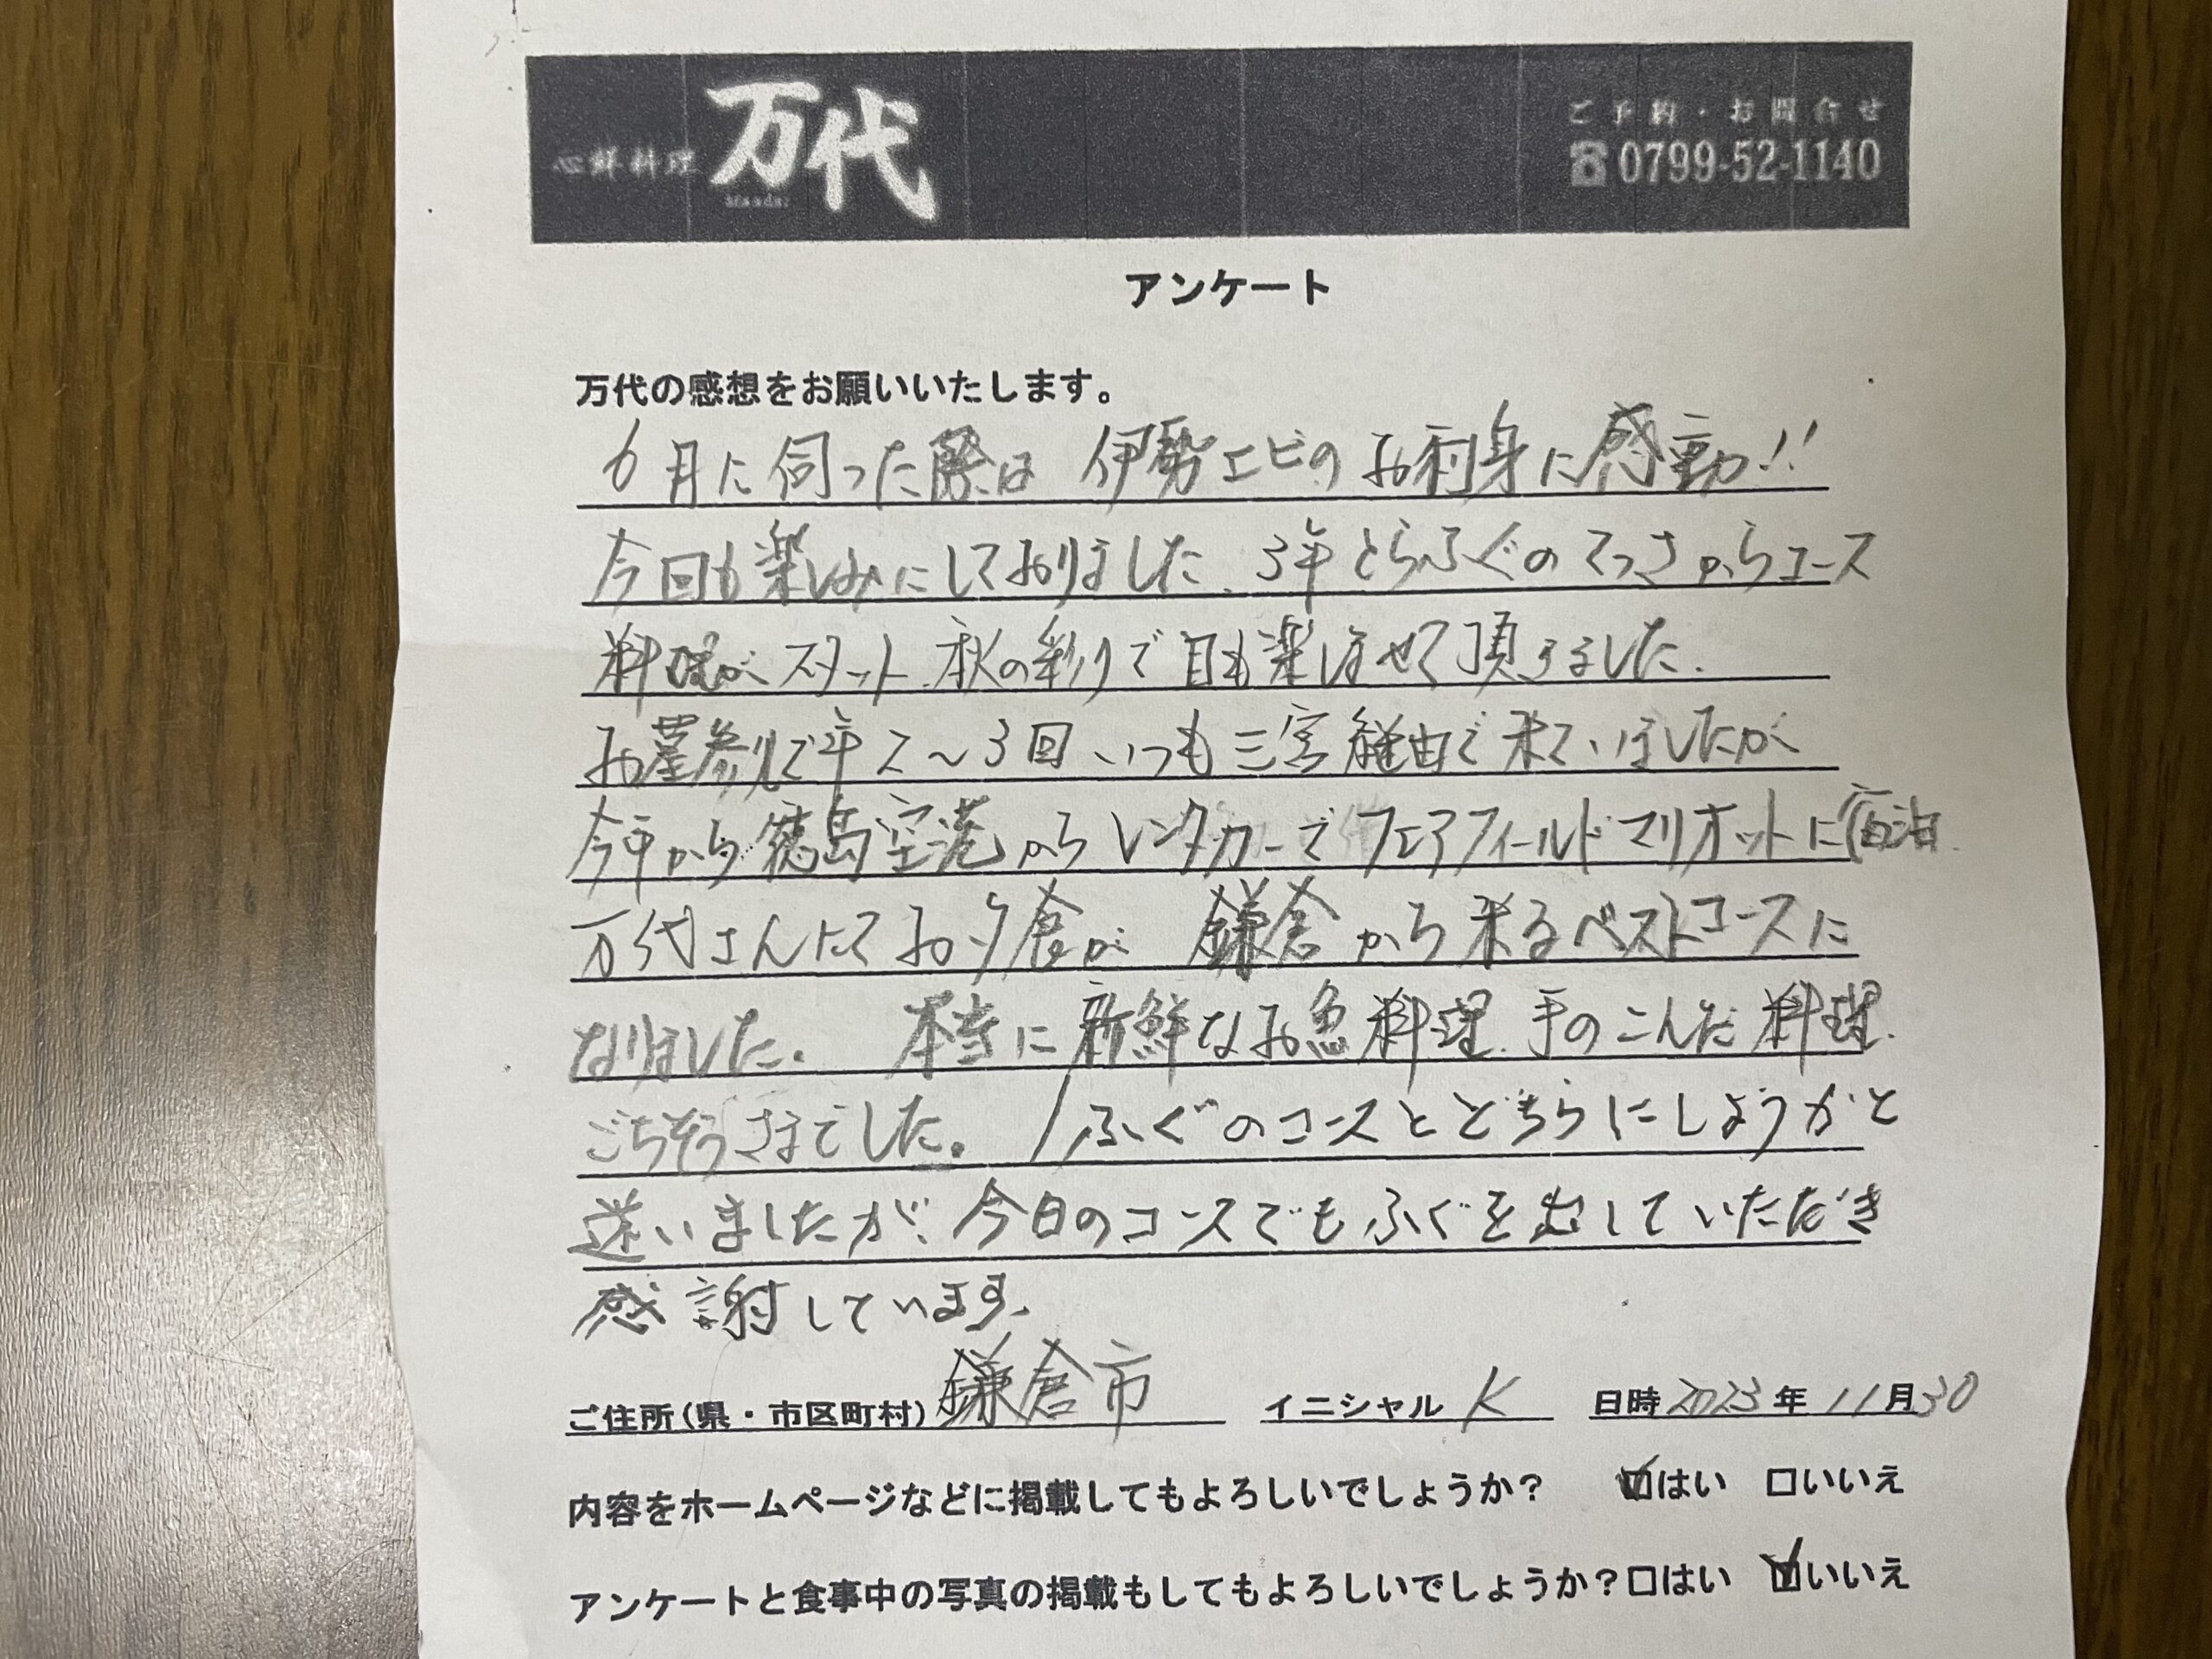 心鮮料理 万代
Mandai
ご予約・お問合せ
☎0799-52-1140
アンケート
万代の感想をお願いいたします。
6月に伺った際は 伊勢エビのお刺身に感動!!
今回も楽しみにしておりました、3年とらふぐのてっさからコース
料理がスタート、秋の彩りで目も楽しませて頂きました。
お墓参りで年2～3回、いつも三宮経由で来ていましたが
今年から徳島空港からレンタカーでフェアフィールドマリオットに宿泊
万代さんにてお夕食が 鎌倉から来るベストコースに
なりました。 本当に新鮮なお魚料理、手のこんだ料理、
ごちそうさまでした。/ふぐのコースとどちらにしようかと
迷いましたが、今日のコースでもふぐを出していただき
感謝しています。
ご住所(県・市区町村) 鎌倉市 イニシャル K 日時 2023年 11月30
内容をホームページなどに掲載してもよろしいでしょうか? ☑はい □いいえ
アンケートと食事中の写真の掲載もしてもよろしいでしょうか?□はい ☑いいえ